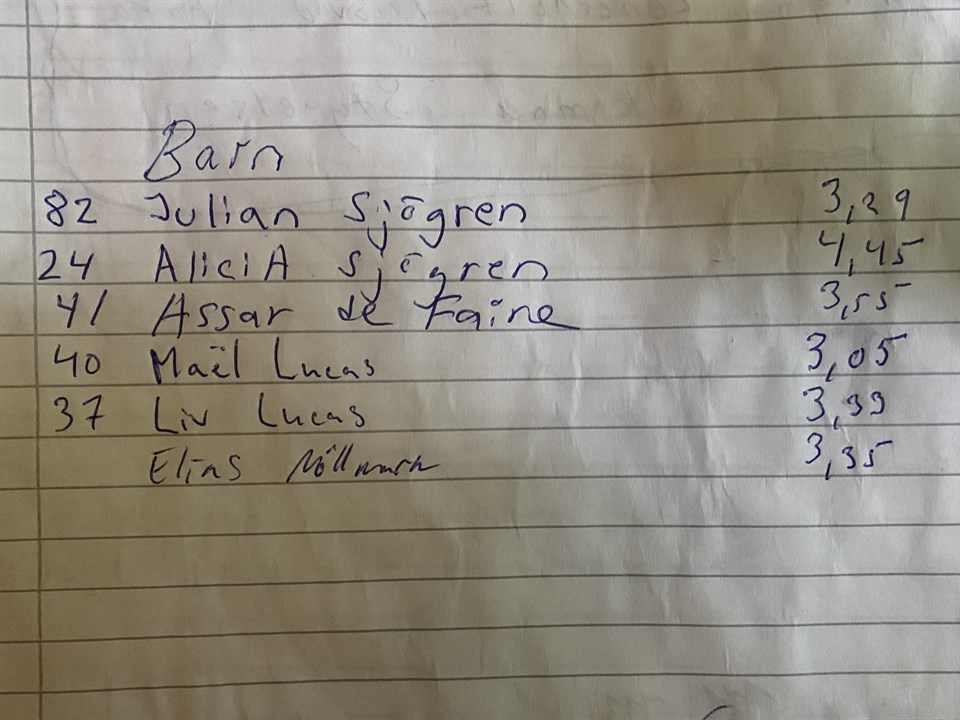 Barn
82 Julian Sjögren 3,29
24 AliciA Sjögren 4,45
41 Assar de Faire 3,55
40 Maël Lucas 3,05
37 Liv Lucas 3,39
Elias 3,35